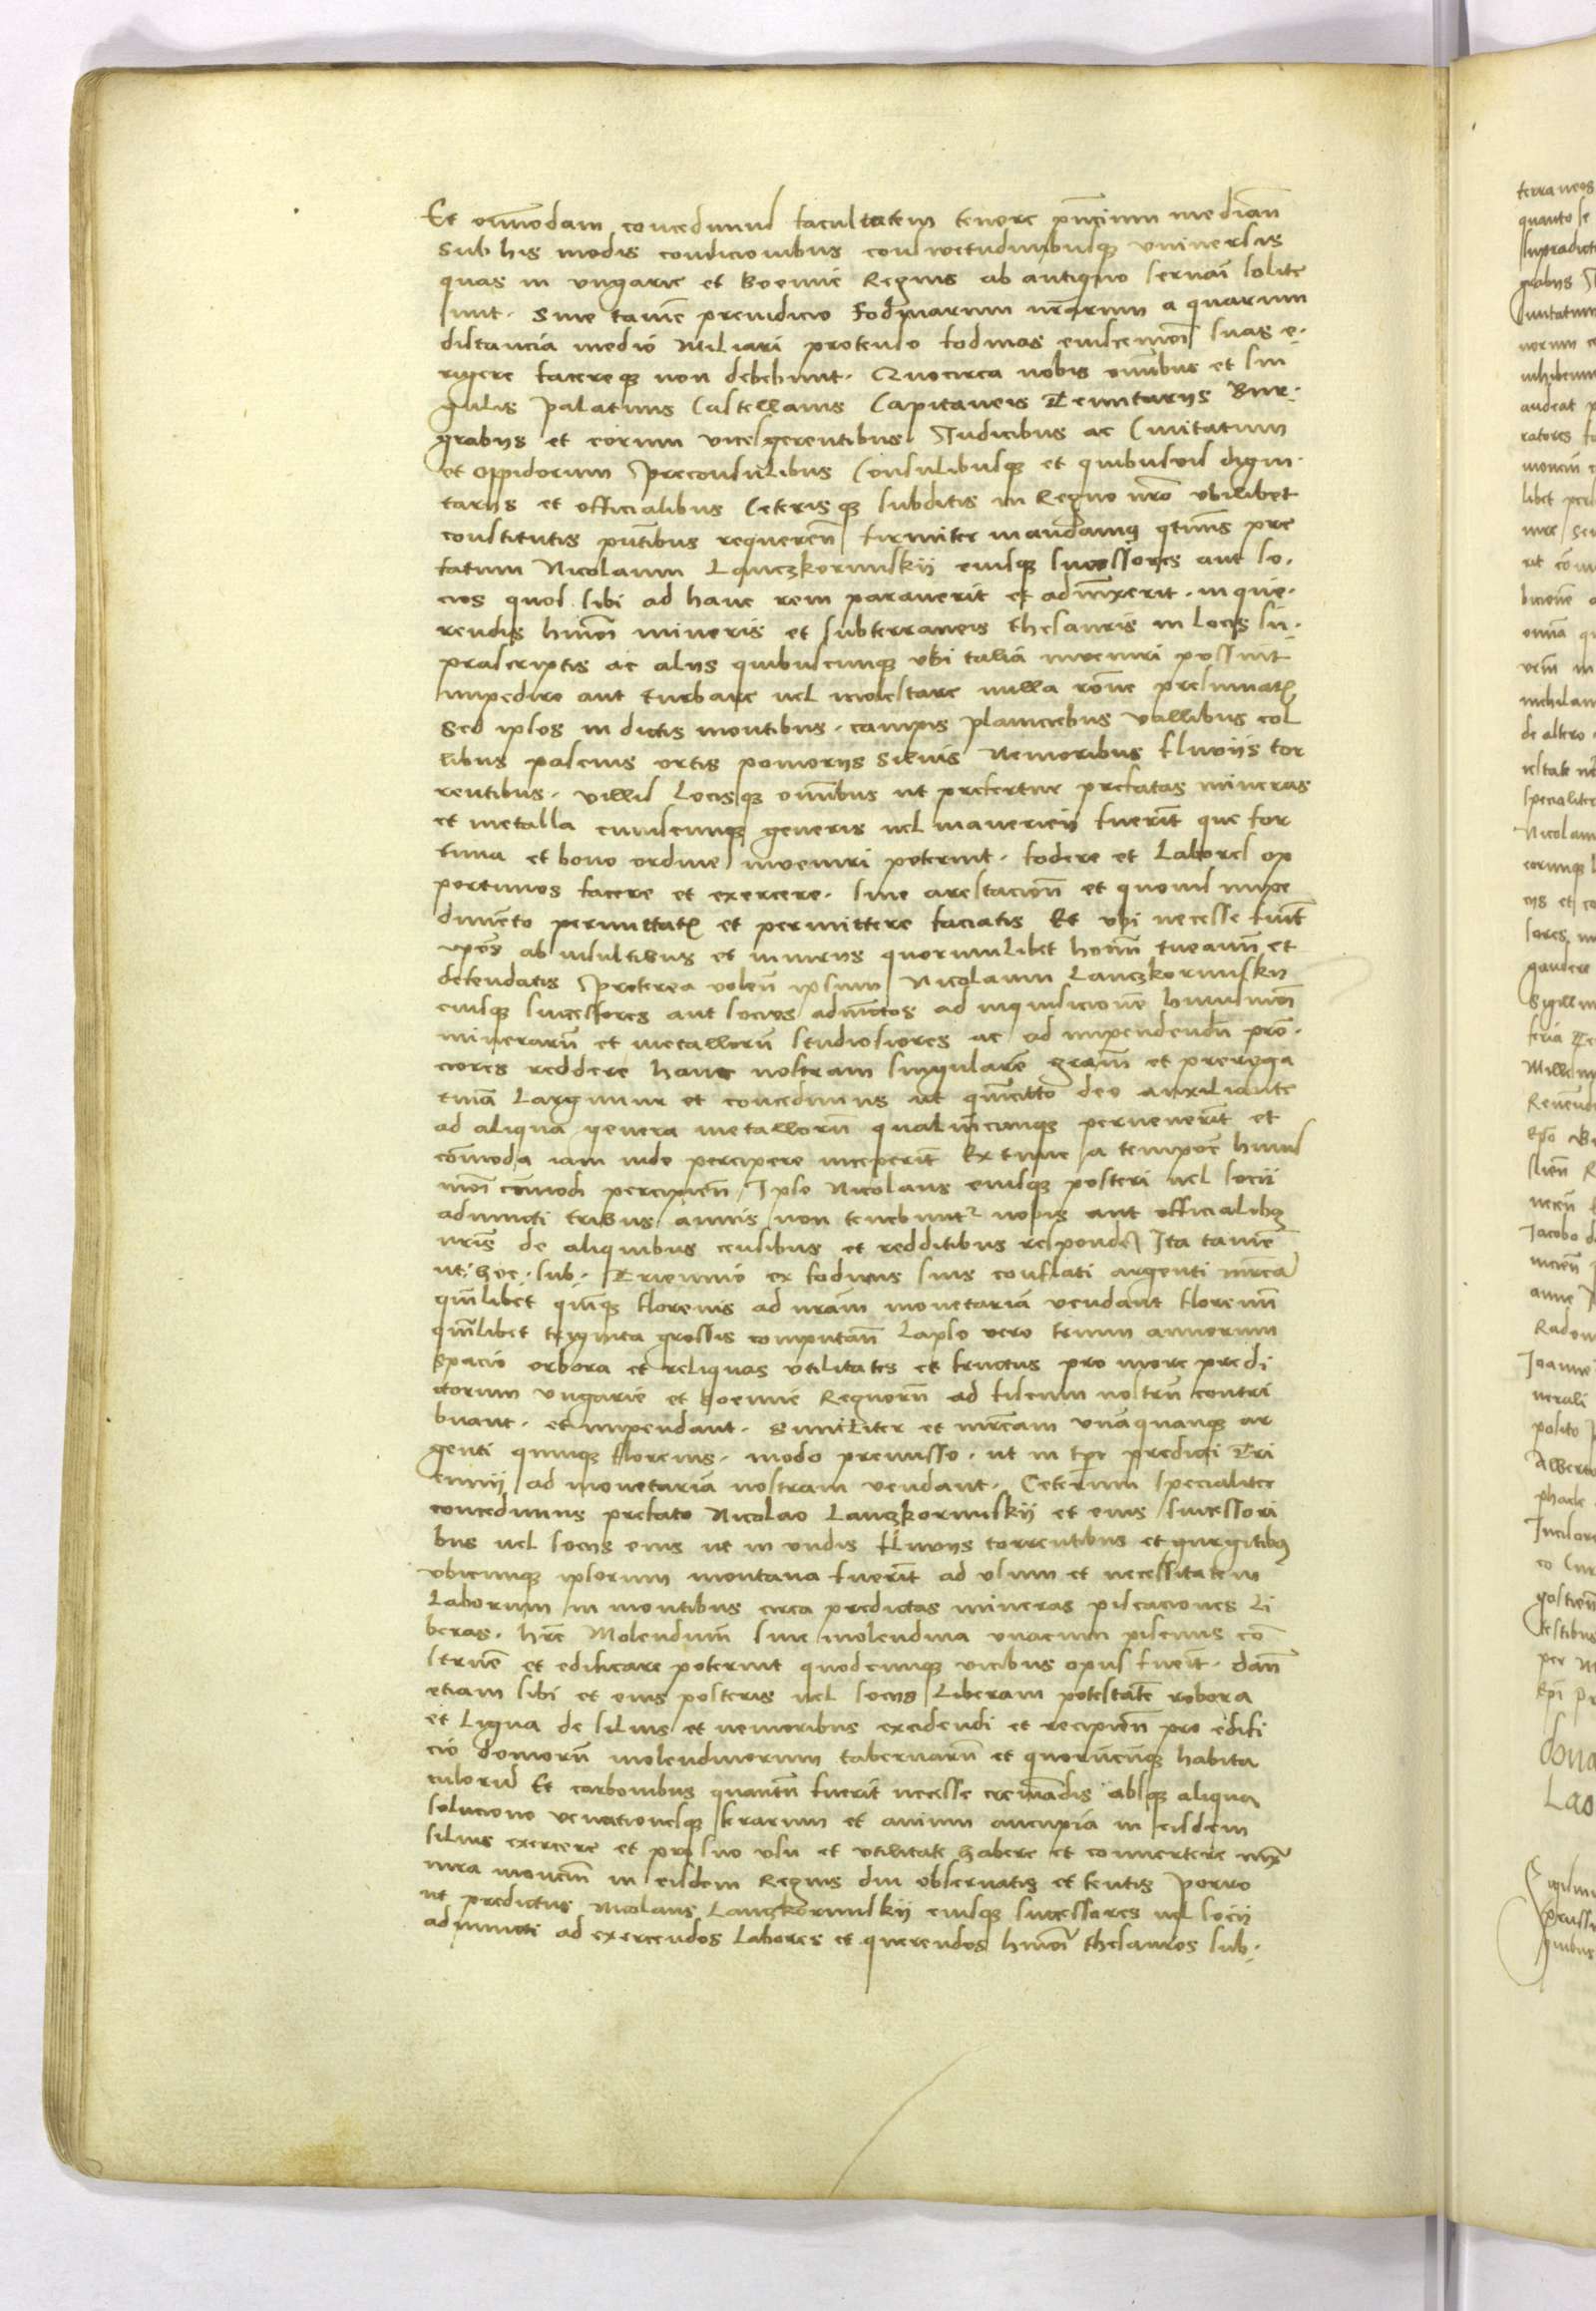 Et omīmodam concedimus facultatem tenore pn̄cium median̄
Sub his modis condicionibus consuetudinibusqʒ vniversis
quas in vngarie et Boemie Regnis ab antiquo servari solite
sunt. Sine tamē preiudicio Fodinarum nrarum a quarum
distancia medio Miliari protenso fodinas eiuscemōi suas e-
rigere facereqʒ non debebunt. Quocirca vobis omībus et sin
gulis Palatinis Castellanis Capitaneis Tenutarijs Bur-
grabijs et eorum vicesgerentibus Judicibus ac Civitatum
et Oppidorum Preconsulibus Consulibusqʒ et quibusvis digni-
tarijs et officialibus Ceterisqʒ subditis in Regno nrō vbilibet
constitutis pntibus requiren̄ firmiter mandamꝰ qtinus pre
fatum Nicolaum Lanczkorunskij eiusqʒ successores aut so-
cios quos sibi ad hanc rem paraverit et adiunxerit. in que-
rendis hmōi mineris et subterraneis thesauris in locis su-
prascriptis ac alijs quibuscumqʒ vbi talia inveniri possint
impedire aut turbare vel molestare nulla rōne presumatis
Sed ipsos in dictis montibus. campis planiciebus vallibus col
libus pascuis ortis pomerijs silvis Nemoribus fluvijs tor
rentibus. villis Locisqʒ omībus ut prefertur prefatas mineras
et metalla cuiuscunqʒ generis vel maneriei fuerīt que for
tuna et bono ordine inveniri poterint. fodere et Labores op
portunos facere et exercere. sine arestacion̄ et quovis impe
dimēto permittatis et permittere faciatis Et vbi necesse fuīt
ipōs ab insultibus et iniurijs quorumlibet hoīm tueamī et
defendatis Preterea volen̄ ipsum Nicolaum Lanczkorunskij
eiusqʒ successores aut socios adiūctos ad inquisicionē huiusmōi
minerarū et metallorū studiosiores ac ad impendendū prō-
ciores reddere hanc nostram singularē gratiam et preroga
tivā Largimur et concedimus ut quācitto deo auxiliante
ad aliqua genera metallorū qualiacunqʒ pervenerīt et
cōmoda iam inde percipere inceperīt Extunc a tempore huius
mōi cōmodi percipien̄ Ipse Nicolaus eiusqʒ posteri vel socii
adiuncti tribus annis non tenebuntʳ nobis aut officialibꝫ
nrīs de aliquibus censibus et redditibus respondeˀ Ita tamē
ut hoc sub Triennio ex fodinis suis conflati argenti mrcā
qmlibet quīqʒ florenis ad nrām monetariā vendant florenū
qmlibet triginta grossis computan̄ Lapso vero trium annorum
spacio orbora et reliquas utilitates et fructus pro more predi
ctorum vngarie et boemie Regnorū ad fiscum nostrū contri
buant. et impendant. Similiter et mrcam vnāquanqʒ ar
genti quinqʒ florenis. modo premisso. ut in tpre predicti Tri
ennij ad monetariā nostram vendant. Ceterum specialiter
concedimus prefato Nicolao Lanczkorunskij et eius successori
bus vel sociis eius ut in vndis fluvijs torrentibus et gurgitibꝫ
vbicunqʒ ipsorum montana fuerīt ad usum et necessitatem
Laborum in montibus circa predictas mineras piscaciones Li
beras. hrē Molendinū sive molendina vnacum piscinis cō
struere et edificare poterint quodcunqʒ vicibus opus fuerit. dan̄
etiam sibi et eius posteris vel socijs Liberam potestatē robora
et Ligna de silvis et nemoribus excidendi et recipien̄ pro edifi
cio domorū molendinorum tabernarū et quorūcūqʒ habita
culorū Et carbonibus quantū fuerit necesse cremādis absqʒ aliqua
solucione venationesqʒ ferarum et avium aucupia in eisdem
silvis exercere et pro suo usu et utilitate habere et convertere iuxta
iura moncium in eisdem Regnis diu observatis et tentis Porro
ut predictus Nicolaus Lanczkorunskij eiusqʒ successores vel socij
adiuncti ad exercendos Labores et querendos hmōi thesauros sub-
terraneos
quanto se
supradict
grabijs
vuntatum
audeat
ratores
libet
gaudere
Sigillū
feria
Nicolau
Jacobo
anno
Radom
Joanne
nerali
posito
Alberto
testibus
per
Dona
Lao
quibus